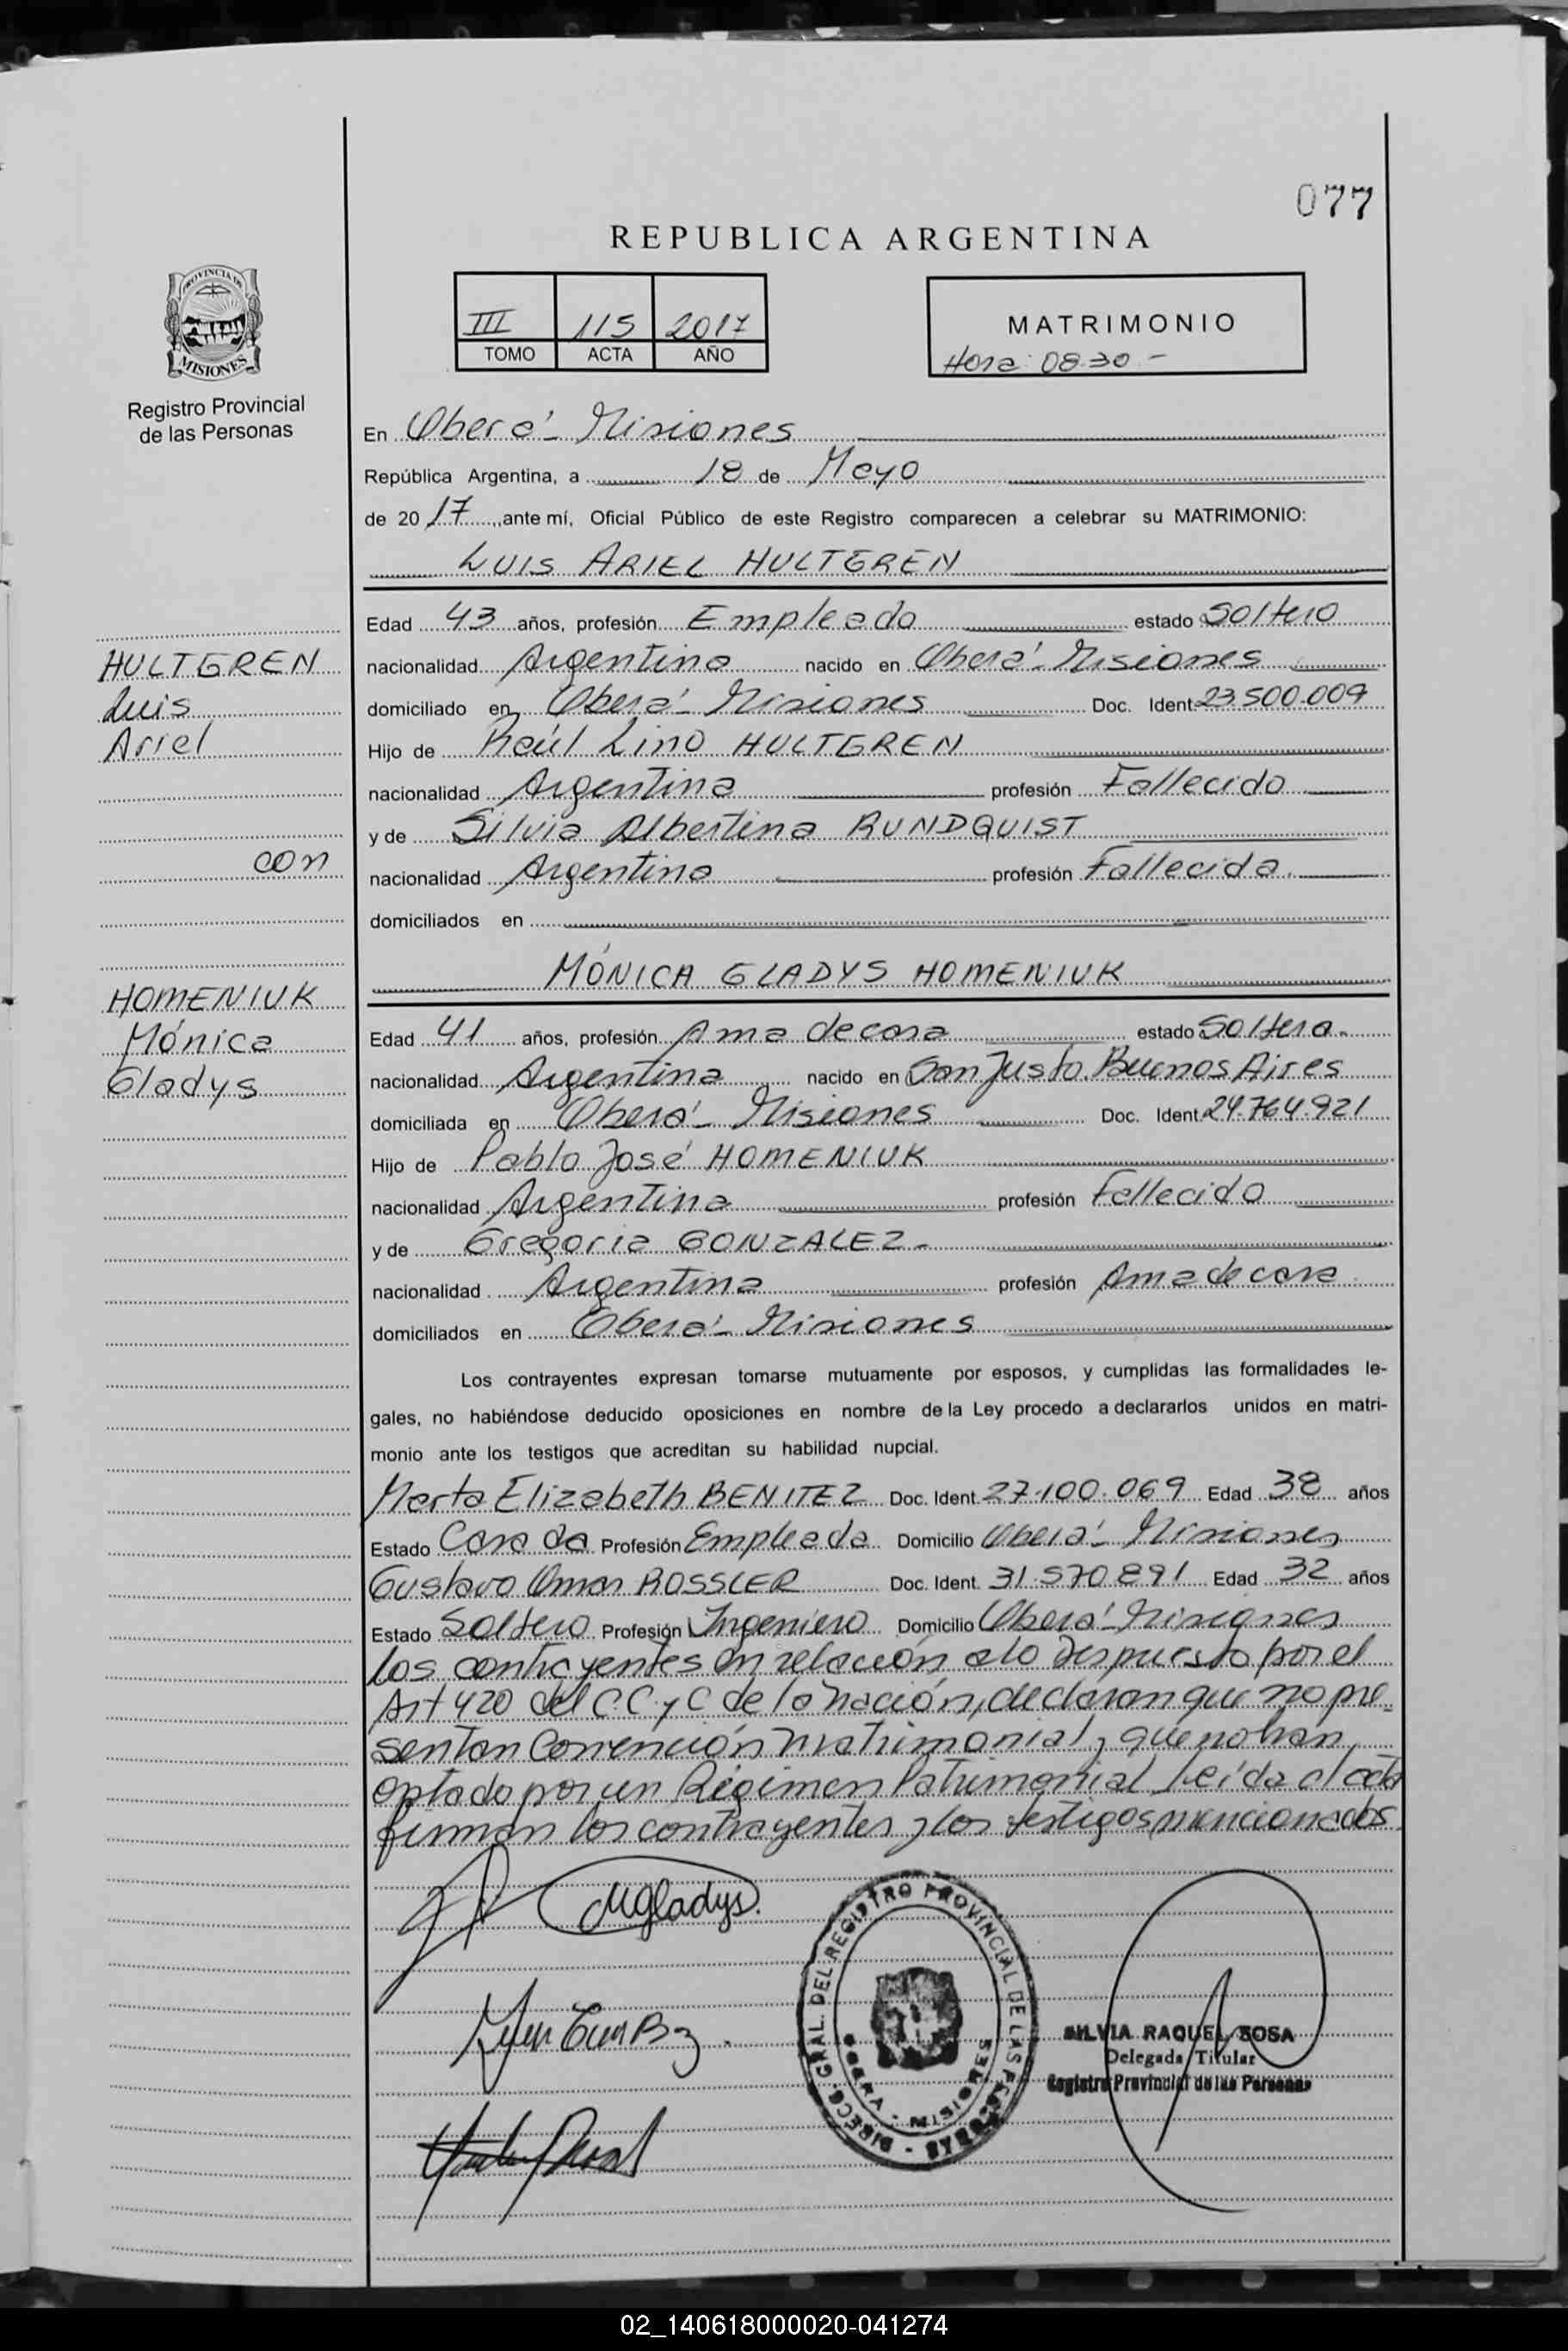 077
REPUBLICA ARGENTINA
PROVINCIA DE
MISIONES
Registro Provincial
de las Personas
III 115 2017
TOMO ACTA AÑO
MATRIMONIO
Hora: 08.30.-
En Oberá - Misiones
República Argentina, a 18 de Mayo
de 2017, ante mí, Oficial Público de este Registro comparecen a celebrar su MATRIMONIO:
LUIS ARIEL HULTGREN
Edad 43 años, profesión Empleado estado Soltero
HULTGREN
Luis
Ariel
nacionalidad Argentina nacido en Oberá - Misiones
domiciliado en Oberá - Misiones Doc. Ident. 23.500.009
Hijo de Raúl Lino HULTGREN
nacionalidad Argentina profesión Fallecido
y de Silvia Albertina RUNDQUIST
con
nacionalidad Argentina profesión Fallecida.
domiciliados en
MÓNICA GLADYS HOMENIUK
HOMENIUK
Mónica
Gladys
Edad 41 años, profesión Ama de casa estado Soltera.
nacionalidad Argentina nacido en San Justo. Buenos Aires
domiciliada en Oberá - Misiones Doc. Ident. 24.764.921
Hijo de Pablo José HOMENIUK
nacionalidad Argentina profesión Fallecido
y de Gregoria GONZALEZ.
nacionalidad Argentina profesión Ama de casa
domiciliados en Oberá - Misiones
Los contrayentes expresan tomarse mutuamente por esposos, y cumplidas las formalidades le-
gales, no habiéndose deducido oposiciones en nombre de la Ley procedo a declararlos unidos en matri-
monio ante los testigos que acreditan su habilidad nupcial.
Marta Elizabeth BENITEZ Doc. Ident. 27.100.069 Edad 38 años
Estado Casada Profesión Empleada Domicilio Oberá - Misiones
Gustavo Omar ROSSLER Doc. Ident. 31.570.891 Edad 32 años
Estado Soltero Profesión Ingeniero Domicilio Oberá - Misiones
los contrayentes en relación a lo Dispuesto por el
Art 420 del C.C. y C de la Nación, declaran que no pre-
sentan Convención Matrimonial, y que no han
optado por un Régimen Patrimonial. Leída el acta
firman los contrayentes y los testigos mencionados
MGladys.
DIRECC. GRAL. DEL REGISTRO PROVINCIAL DE LAS PERSONAS
OBERA - MISIONES
SILVIA RAQUEL SOSA
Delegada Titular
Registro Provincial de las Personas
02_140618000020-041274